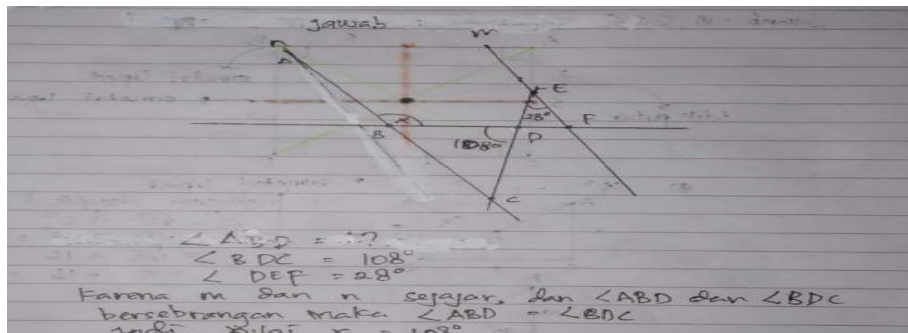 Jawab :
n m
A E
28° F
B x D
108°
C
∠ ABD = ?
∠ BDC = 108°
∠ DEF = 28°
Karena m dan n sejajar, dan ∠ABD dan ∠BDC
bersebrangan maka ∠ABD = ∠BDC
Jadi nilai x = 108°